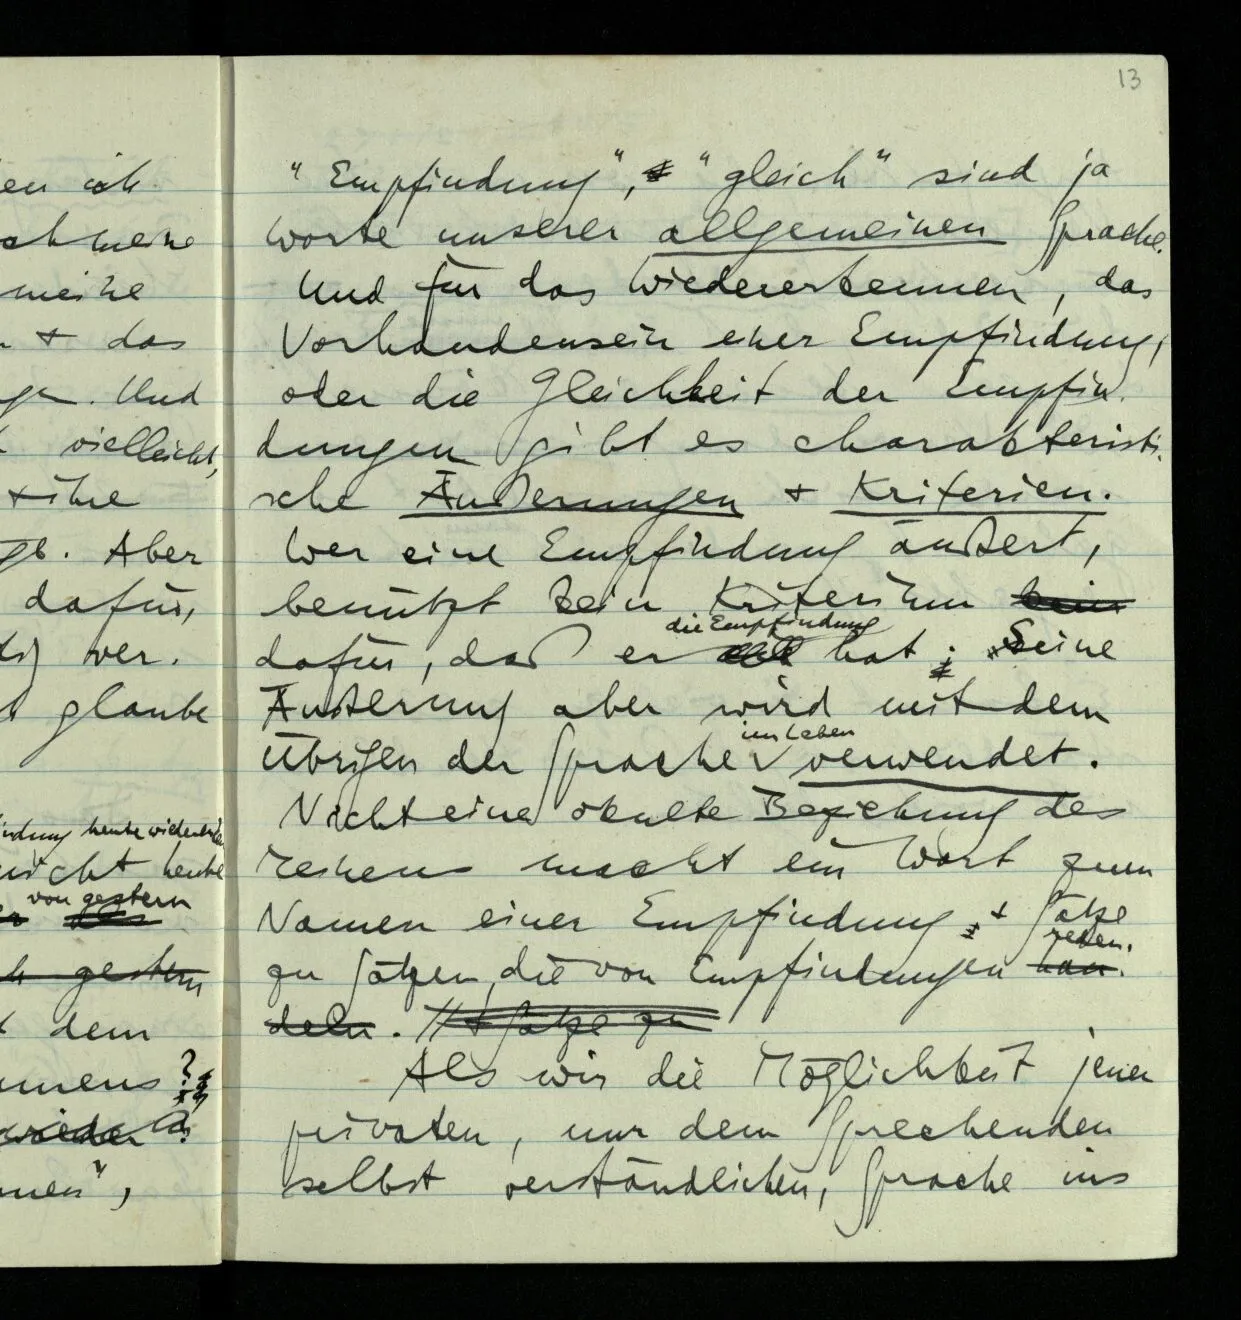 13
en ich
"Empfindung", "gleich" sind ja
Worte unserer allgemeinen Sprache.
meine
Und für das Wiedererkennen, das
+ das
Vorhandensein einer Empfindung,
Und
oder die Gleichheit der Empfin-
vielleicht,
dungen gibt es charakteristi-
+ ihre
sche Äußerungen + Kriterien.
Aber
Wer eine Empfindung äußert,
dafür,
benützt kein Kriterium
die Empfindung
ver-
dafür, daß er hat; Seine
glaube
Äußerung aber wird mit dem
im Leben
Übrigen der Sprache verwendet.
Nicht eine okulte Beziehung des
heute
nicht heute
Zeichens macht ein Wort zum
von gestern
Namen einer Empfindung + Sätze
reden.
gestern
zu Sätzen, die von Empfindungen han-
dem
deln. // + Sätze zu
?
Als wir die Möglichkeit jener
wieder
privaten, nur dem Sprechenden
selbst verständlichen, Sprache ins